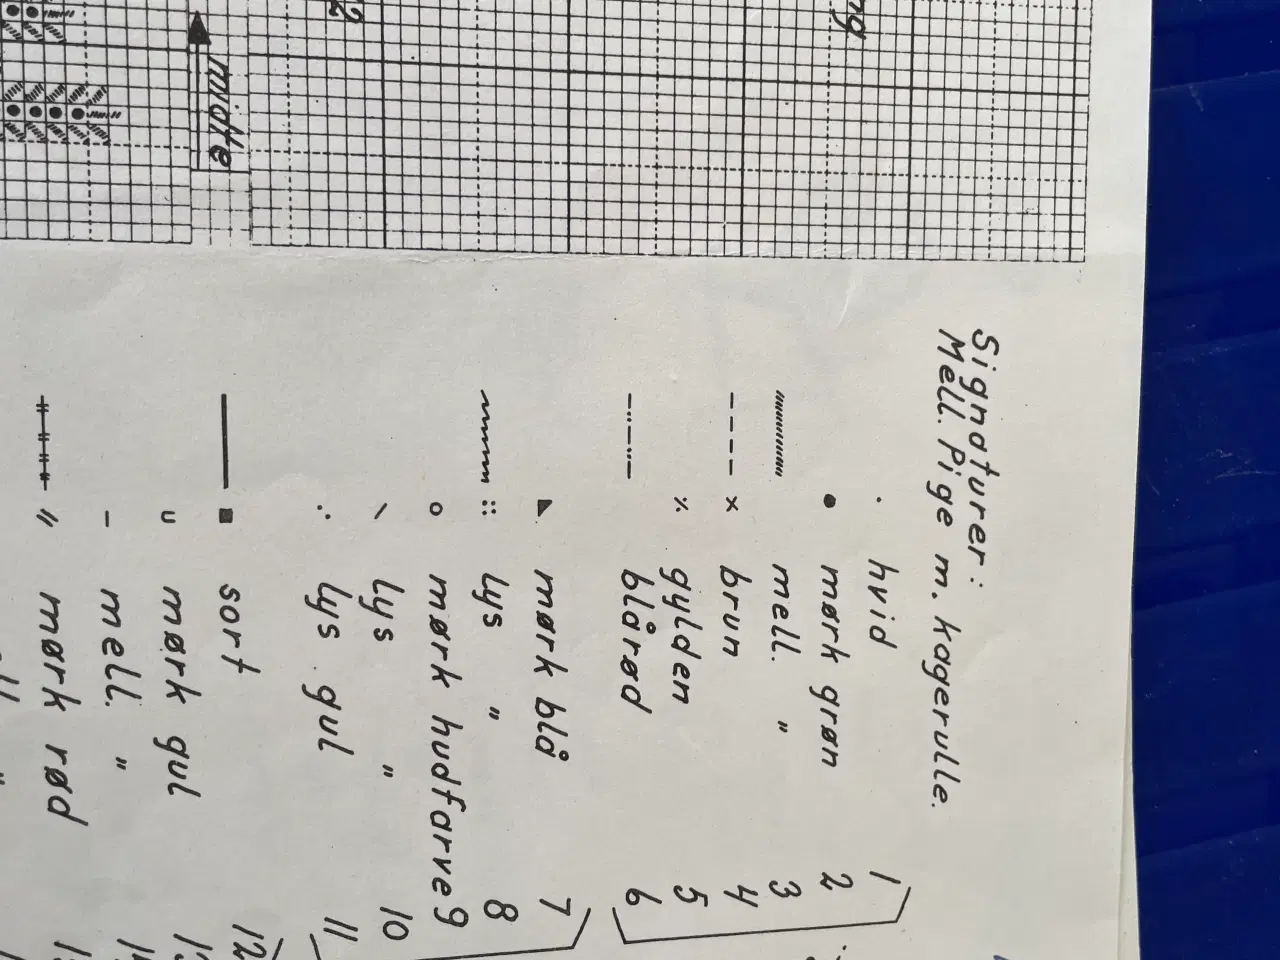 Signaturer:
Mell. Pige m. kagerulle.
hvid 1
mørk grøn 2
mell. " 3
brun 4
gylden 5
blårød 6
mørk blå 7
lys " 8
mørk hudfarve 9
lys " 10
lys gul 11
sort 12
mørk gul
mell. "
mørk rød
midte